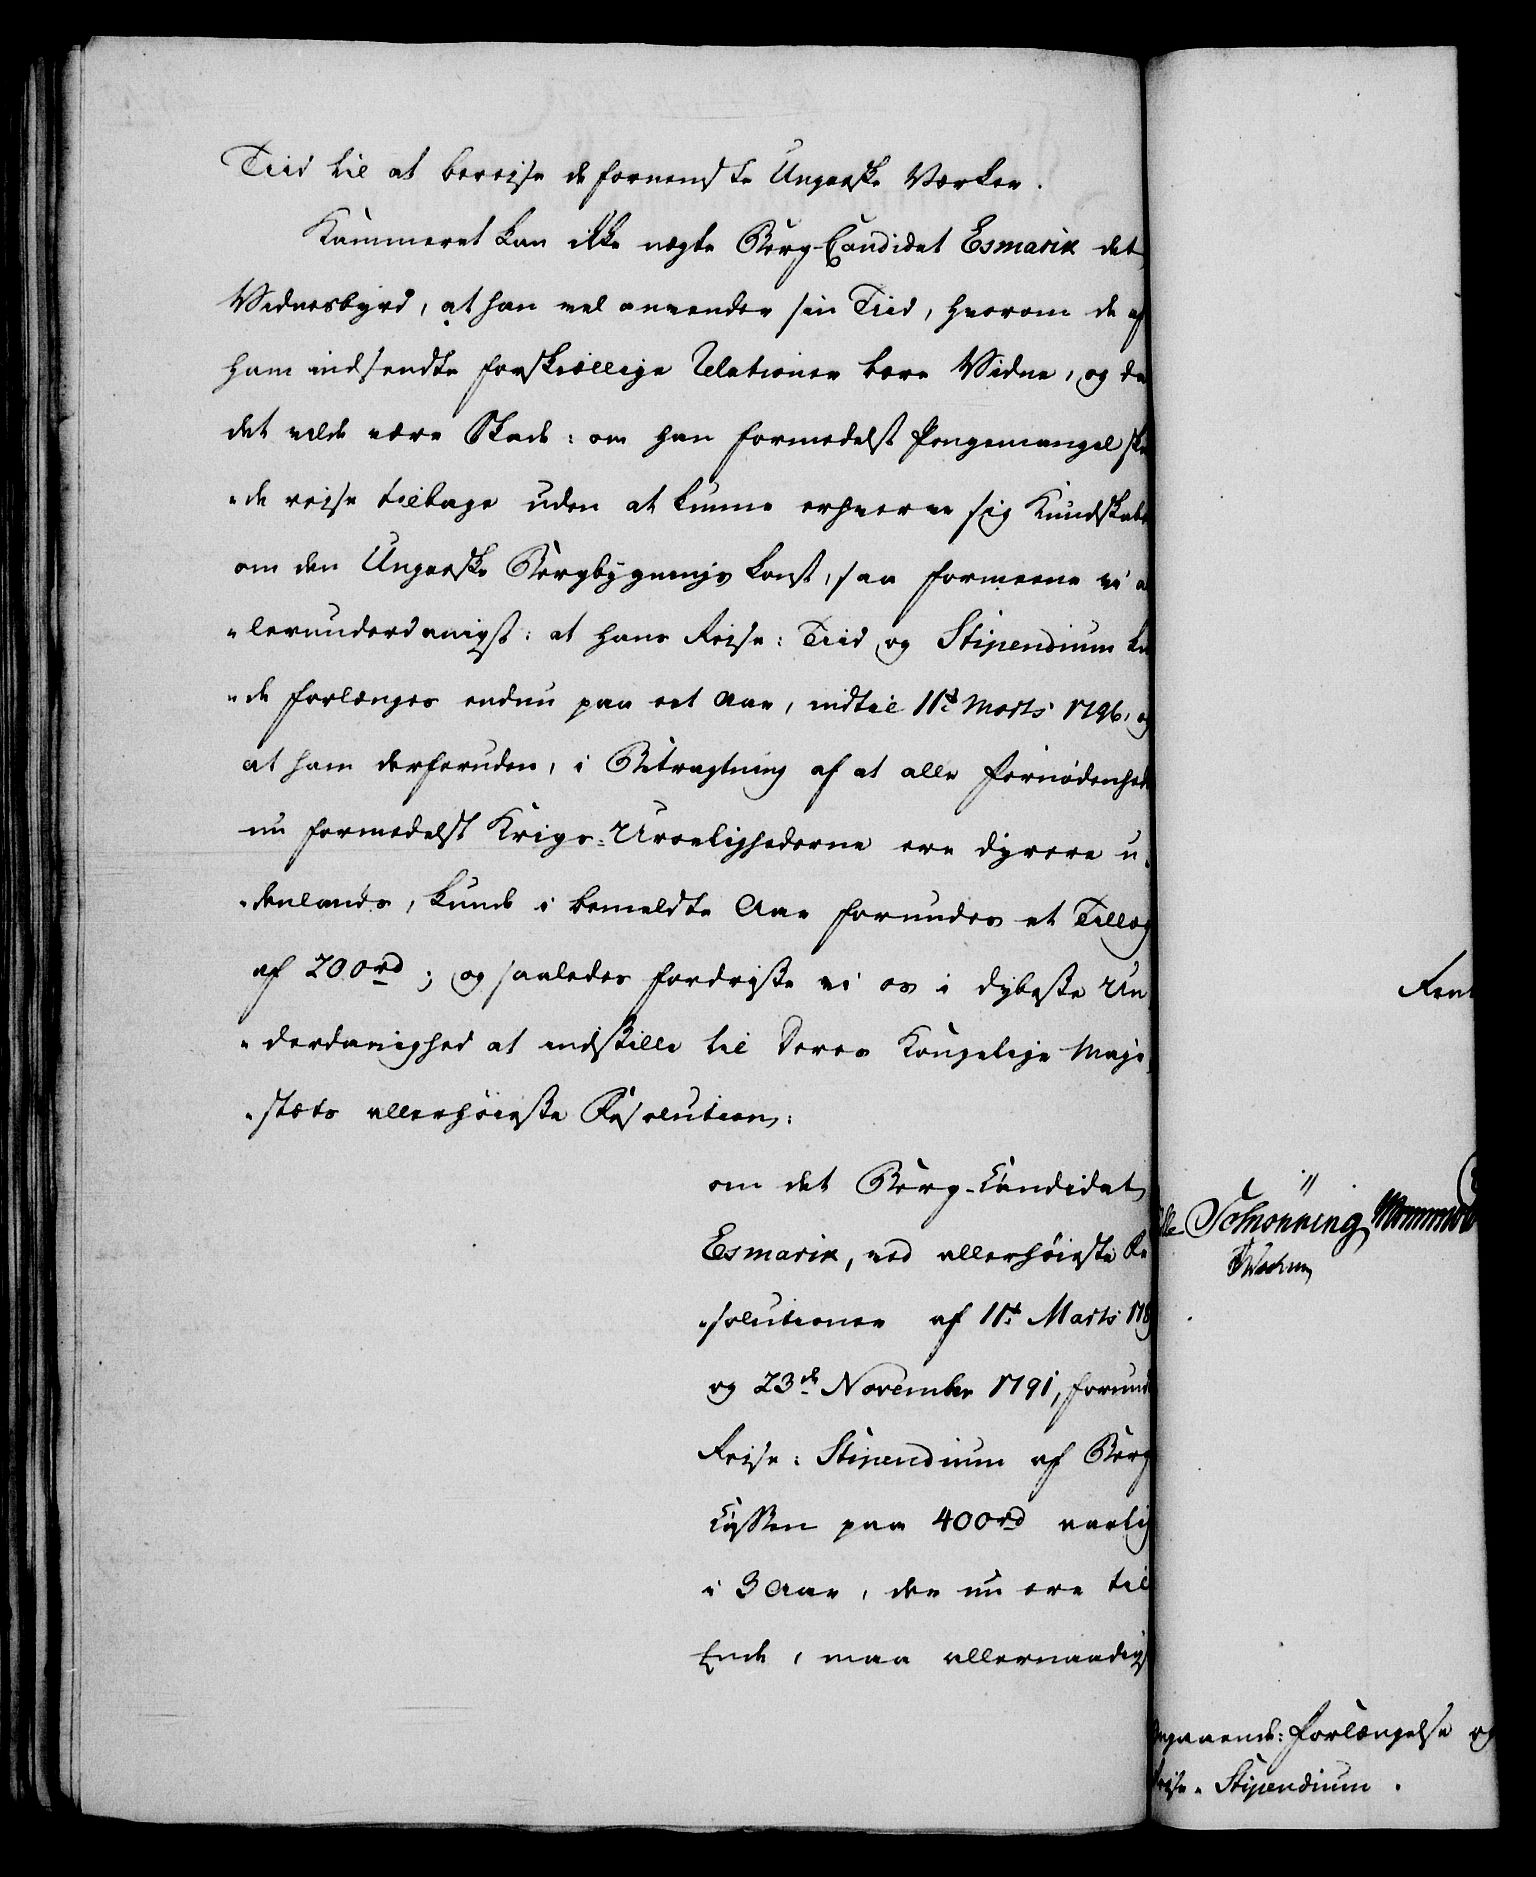 Tiid til at bereise de fornemste Ungarske Værker.
Kammeret kan ikke nægte Berg-Candidat Esmark det
Vidnesbyrd, at han vel anvender sin Tiid, hvorom de af
ham indsendte forskiællige Relationer bære Vidne, og da
det vilde være Skade: om han formedelst Pengemangel sku
„de reise tilbage uden at kunne erhverve sig Kundskab
om den Ungarske Bergbygnings Konst, saa formeene vi a
„lerunderdanigst: at hans Reise: Tiid og Stipendium ku
„de forlænges endnu paa eet Aar, indtil 11te Marts 1796, og
at ham derforuden, i Betragtning af at alle Fornødenhed
nu formedelst Krigs-Uroelighederne ere dyrere u-
„denlands, kunde i bemeldte Aar forundes et Tillæg
af 200rd; og saaledes fordriste vi os i dybeste Un
„derdanighed at indstille til Deres Kongelige Maje
„stæts allerhøieste Resolution:
om det Berg-Candidat
Esmark, ved allerhøieste Re
„solutioner af 11te Marts 178
og 23de November 1791, forund
Reise: Stipendium af Berg
Cassen paa 400rd aarlig
i 3 Aar, der nu ere til
Ende, maa allernaadigs
Rent
Schønning
Wormskiold
angaaende: Forlængelse og
Reise-Stipendium.